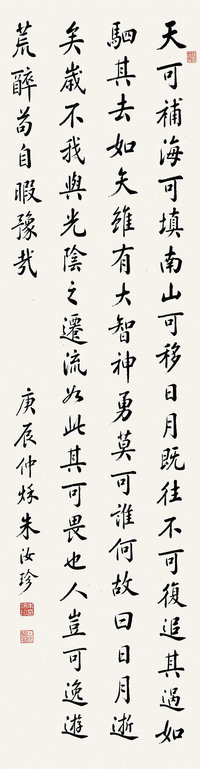 天可補海可填南山可移日月既往不可復追其過如
駟其去如矢雖有大智神勇莫可誰何故曰日月逝
矣歲不我與光陰之遷流如此其可畏也人豈可逸遊
荒醉苟自暇豫哉
庚辰仲秌朱汝珍